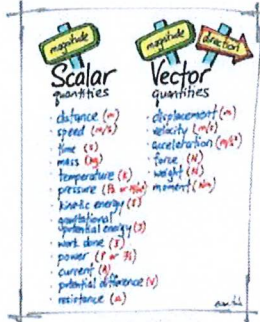 magnitude
Scalar
quantities
distance (m)
speed (m/s)
time (s)
mass (kg)
temperature (K)
pressure (Pa or N/m²)
kinetic energy (J)
gravitational
potential energy (J)
work done (J)
power
current (A)
potential difference (V)
resistance (Ω)
magnitude direction
Vector
quantities
displacement (m)
velocity (m/s)
acceleration (m/s²)
force (N)
weight (N)
moment (Nm)